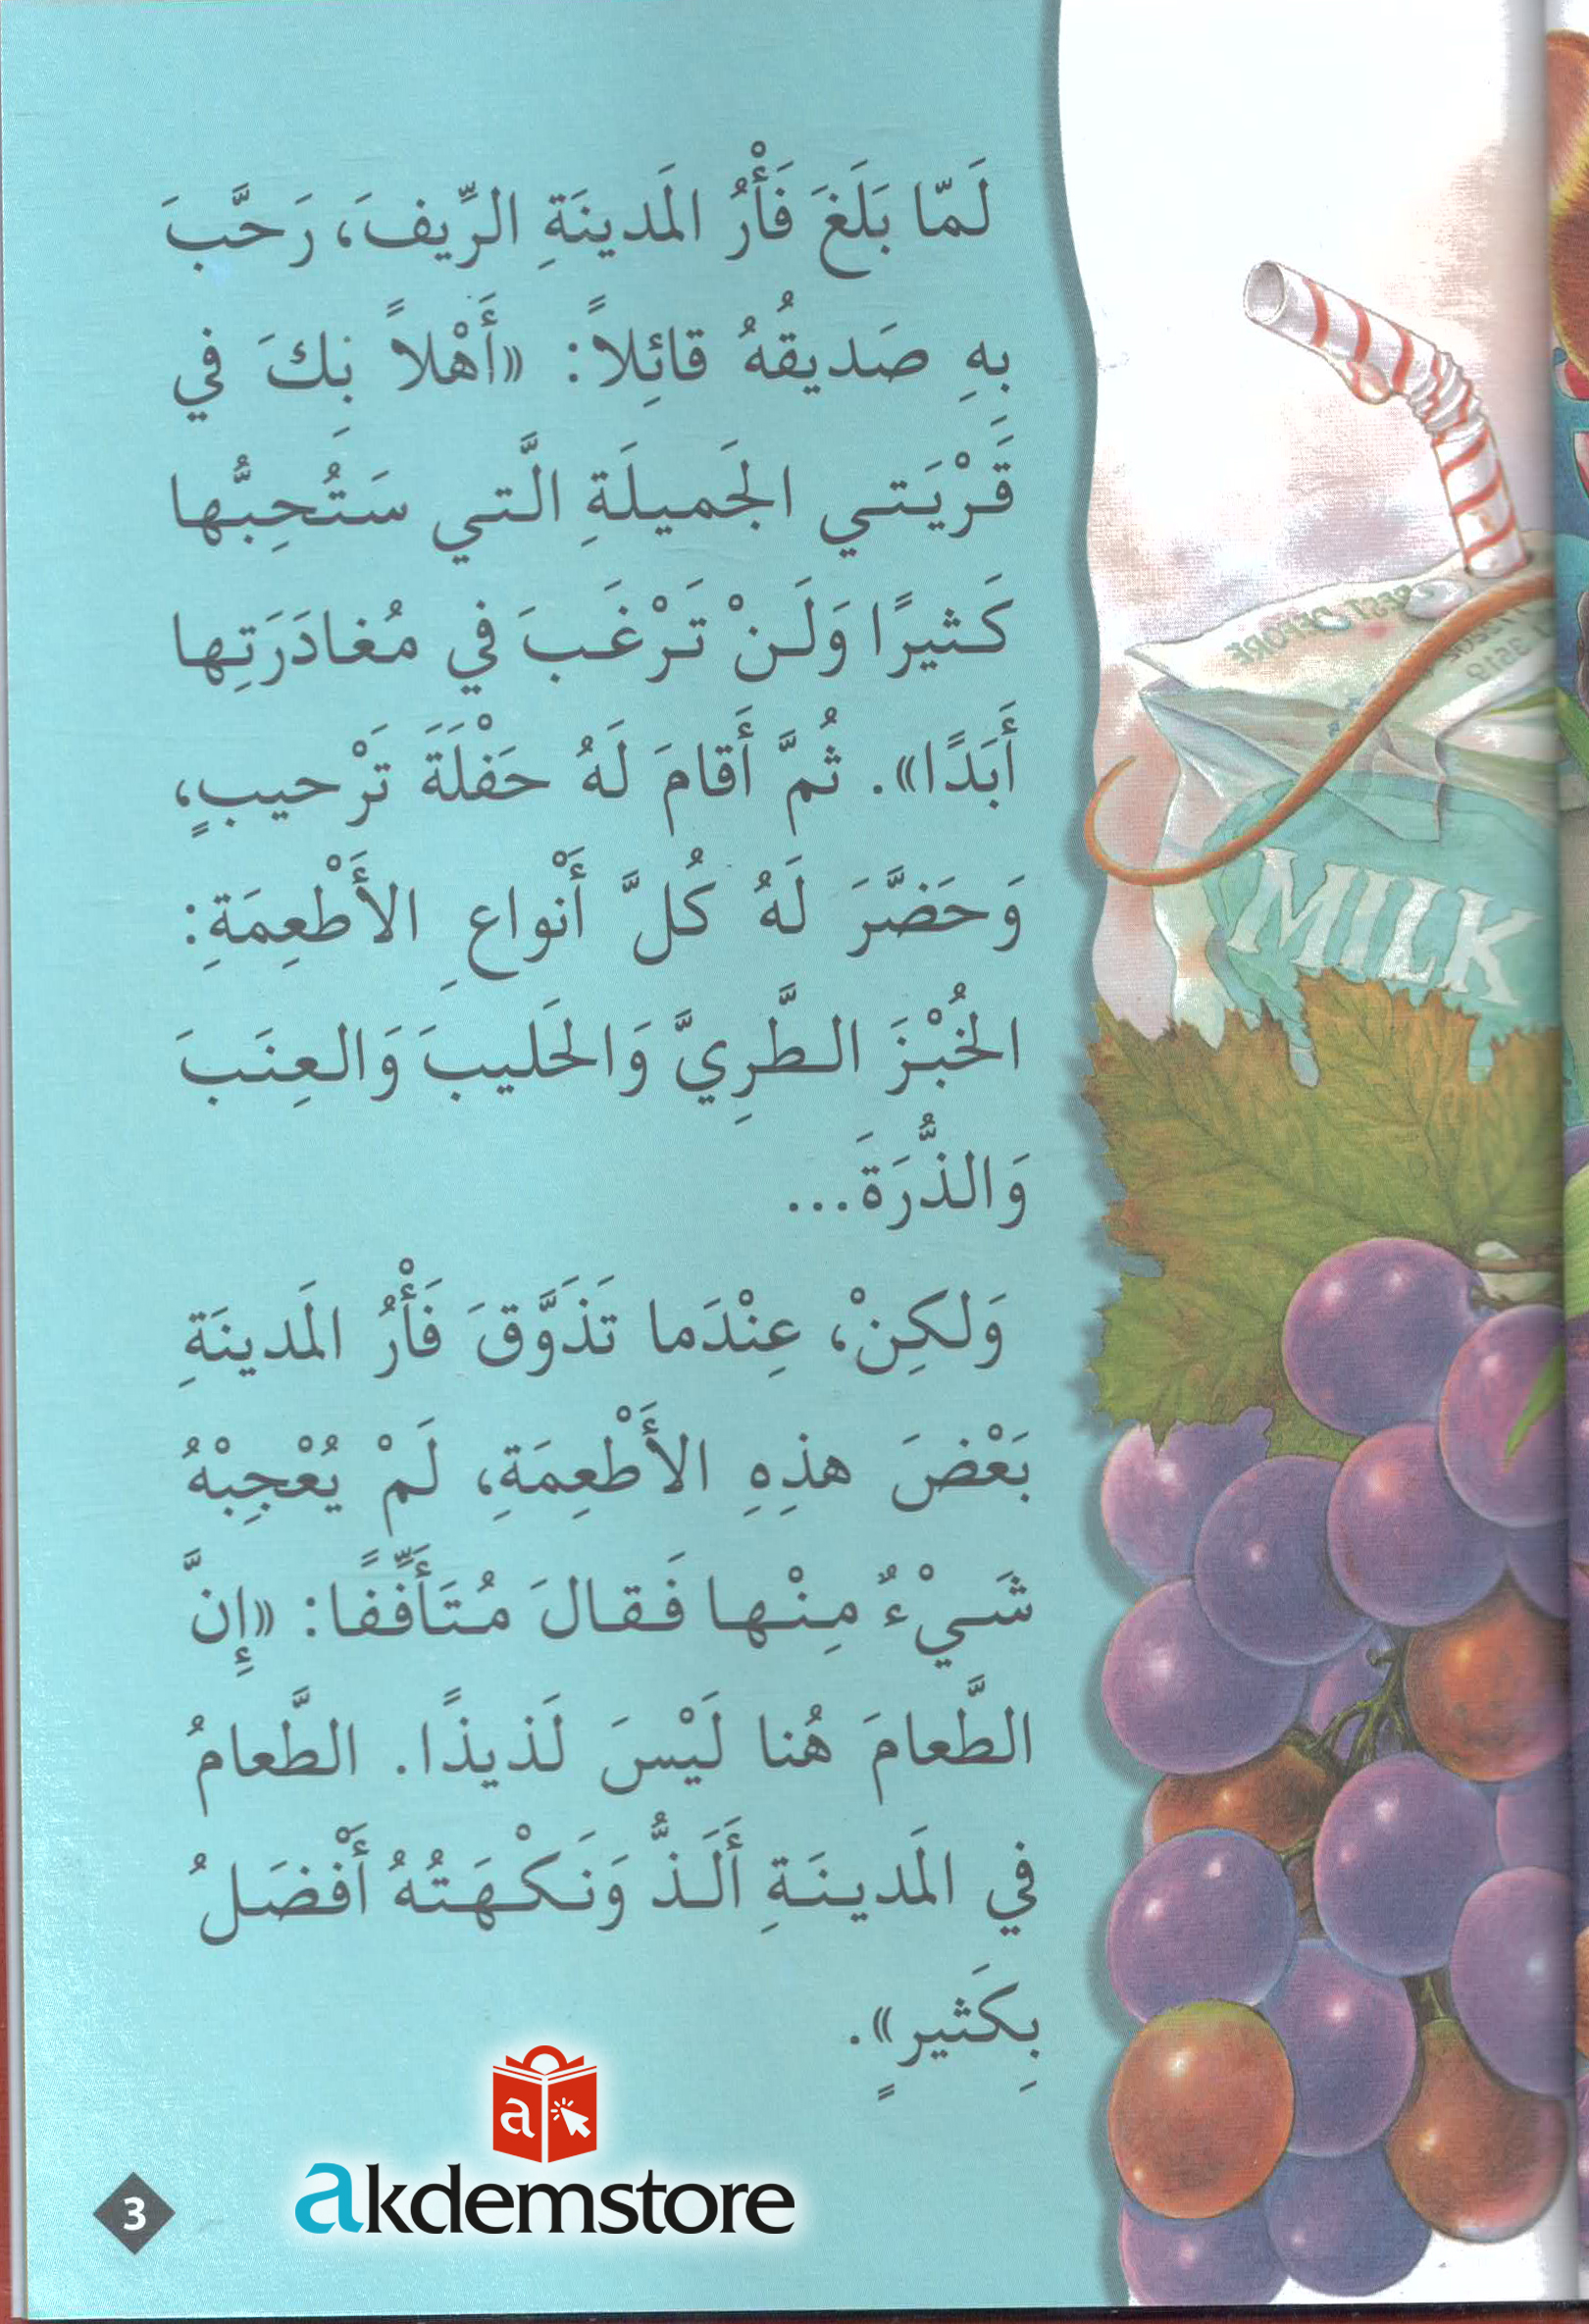 لَمّا بَلَغَ فَأْرُ المَدينَةِ الرِّيفَ، رَحَّبَ
بِهِ صَديقُهُ قائِلاً: «أَهْلاً بِكَ في
قَرْيَتي الجَميلَةِ الَّتي سَتُحِبُّها
كَثيرًا وَلَنْ تَرْغَبَ في مُغادَرَتِها
أَبَدًا». ثُمَّ أَقامَ لَهُ حَفْلَةَ تَرْحيبٍ،
وَحَضَّرَ لَهُ كُلَّ أَنْواعِ الأَطْعِمَةِ:
الخُبْزَ الطَّرِيَّ وَالحَليبَ وَالعِنَبَ
وَالذُّرَةَ...
وَلكِنْ، عِنْدَما تَذَوَّقَ فَأْرُ المَدينَةِ
بَعْضَ هذِهِ الأَطْعِمَةِ، لَمْ يُعْجِبْهُ
شَيْءٌ مِنْها فَقالَ مُتَأَفِّفًا: «إِنَّ
الطَّعامَ هُنا لَيْسَ لَذيذًا. الطَّعامُ
في المَدينَةِ أَلَذُّ وَنَكْهَتُهُ أَفْضَلُ
بِكَثيرٍ».
BEST BEFORE
MILK
a
akdemstore
3